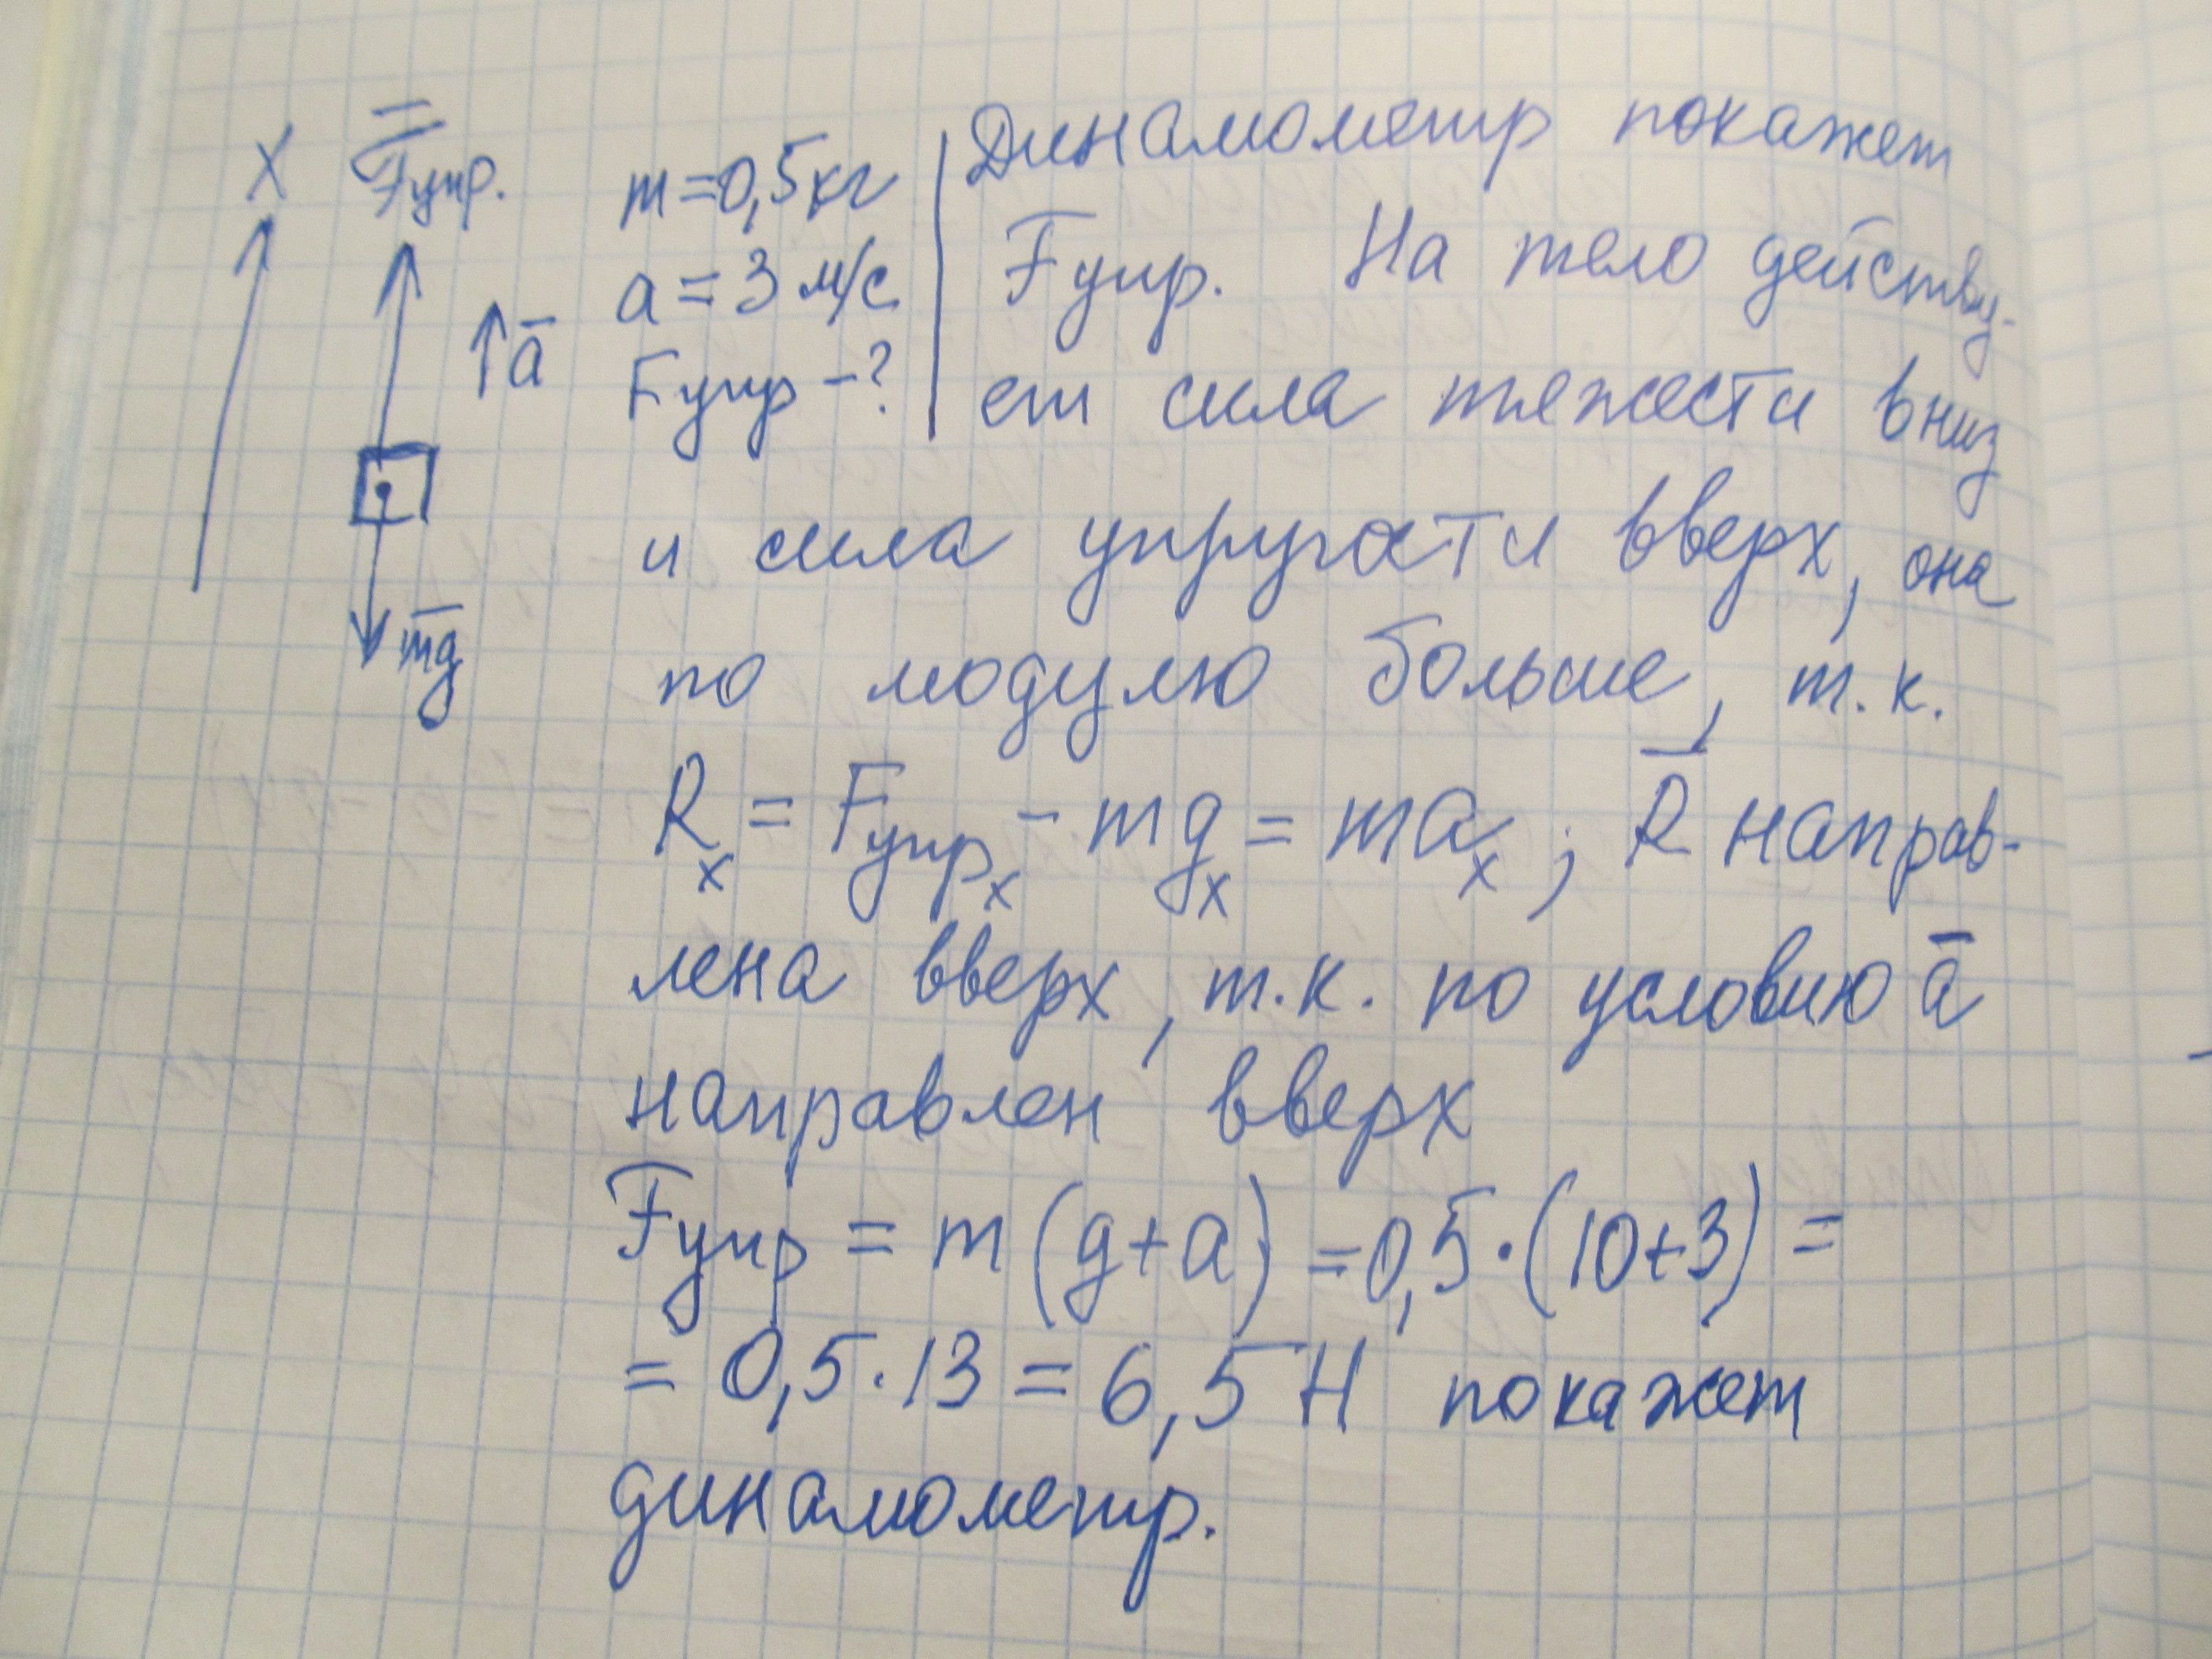 X F̅упр. m=0,5кг | Динамометр покажет
a̅ a=3 м/с | Fупр. На тело действу-
Fупр -? | ет сила тяжести вниз
и сила упругости вверх, она
m̅g̅ по модулю больше, т.к.
Rₓ = Fупрₓ - mgₓ = maₓ ; R̅ направ-
лена вверх, т.к. по условию a̅
направлен вверх
Fупр = m(g+a) =0,5·(10+3) =
= 0,5·13 = 6,5 Н покажет
динамометр.